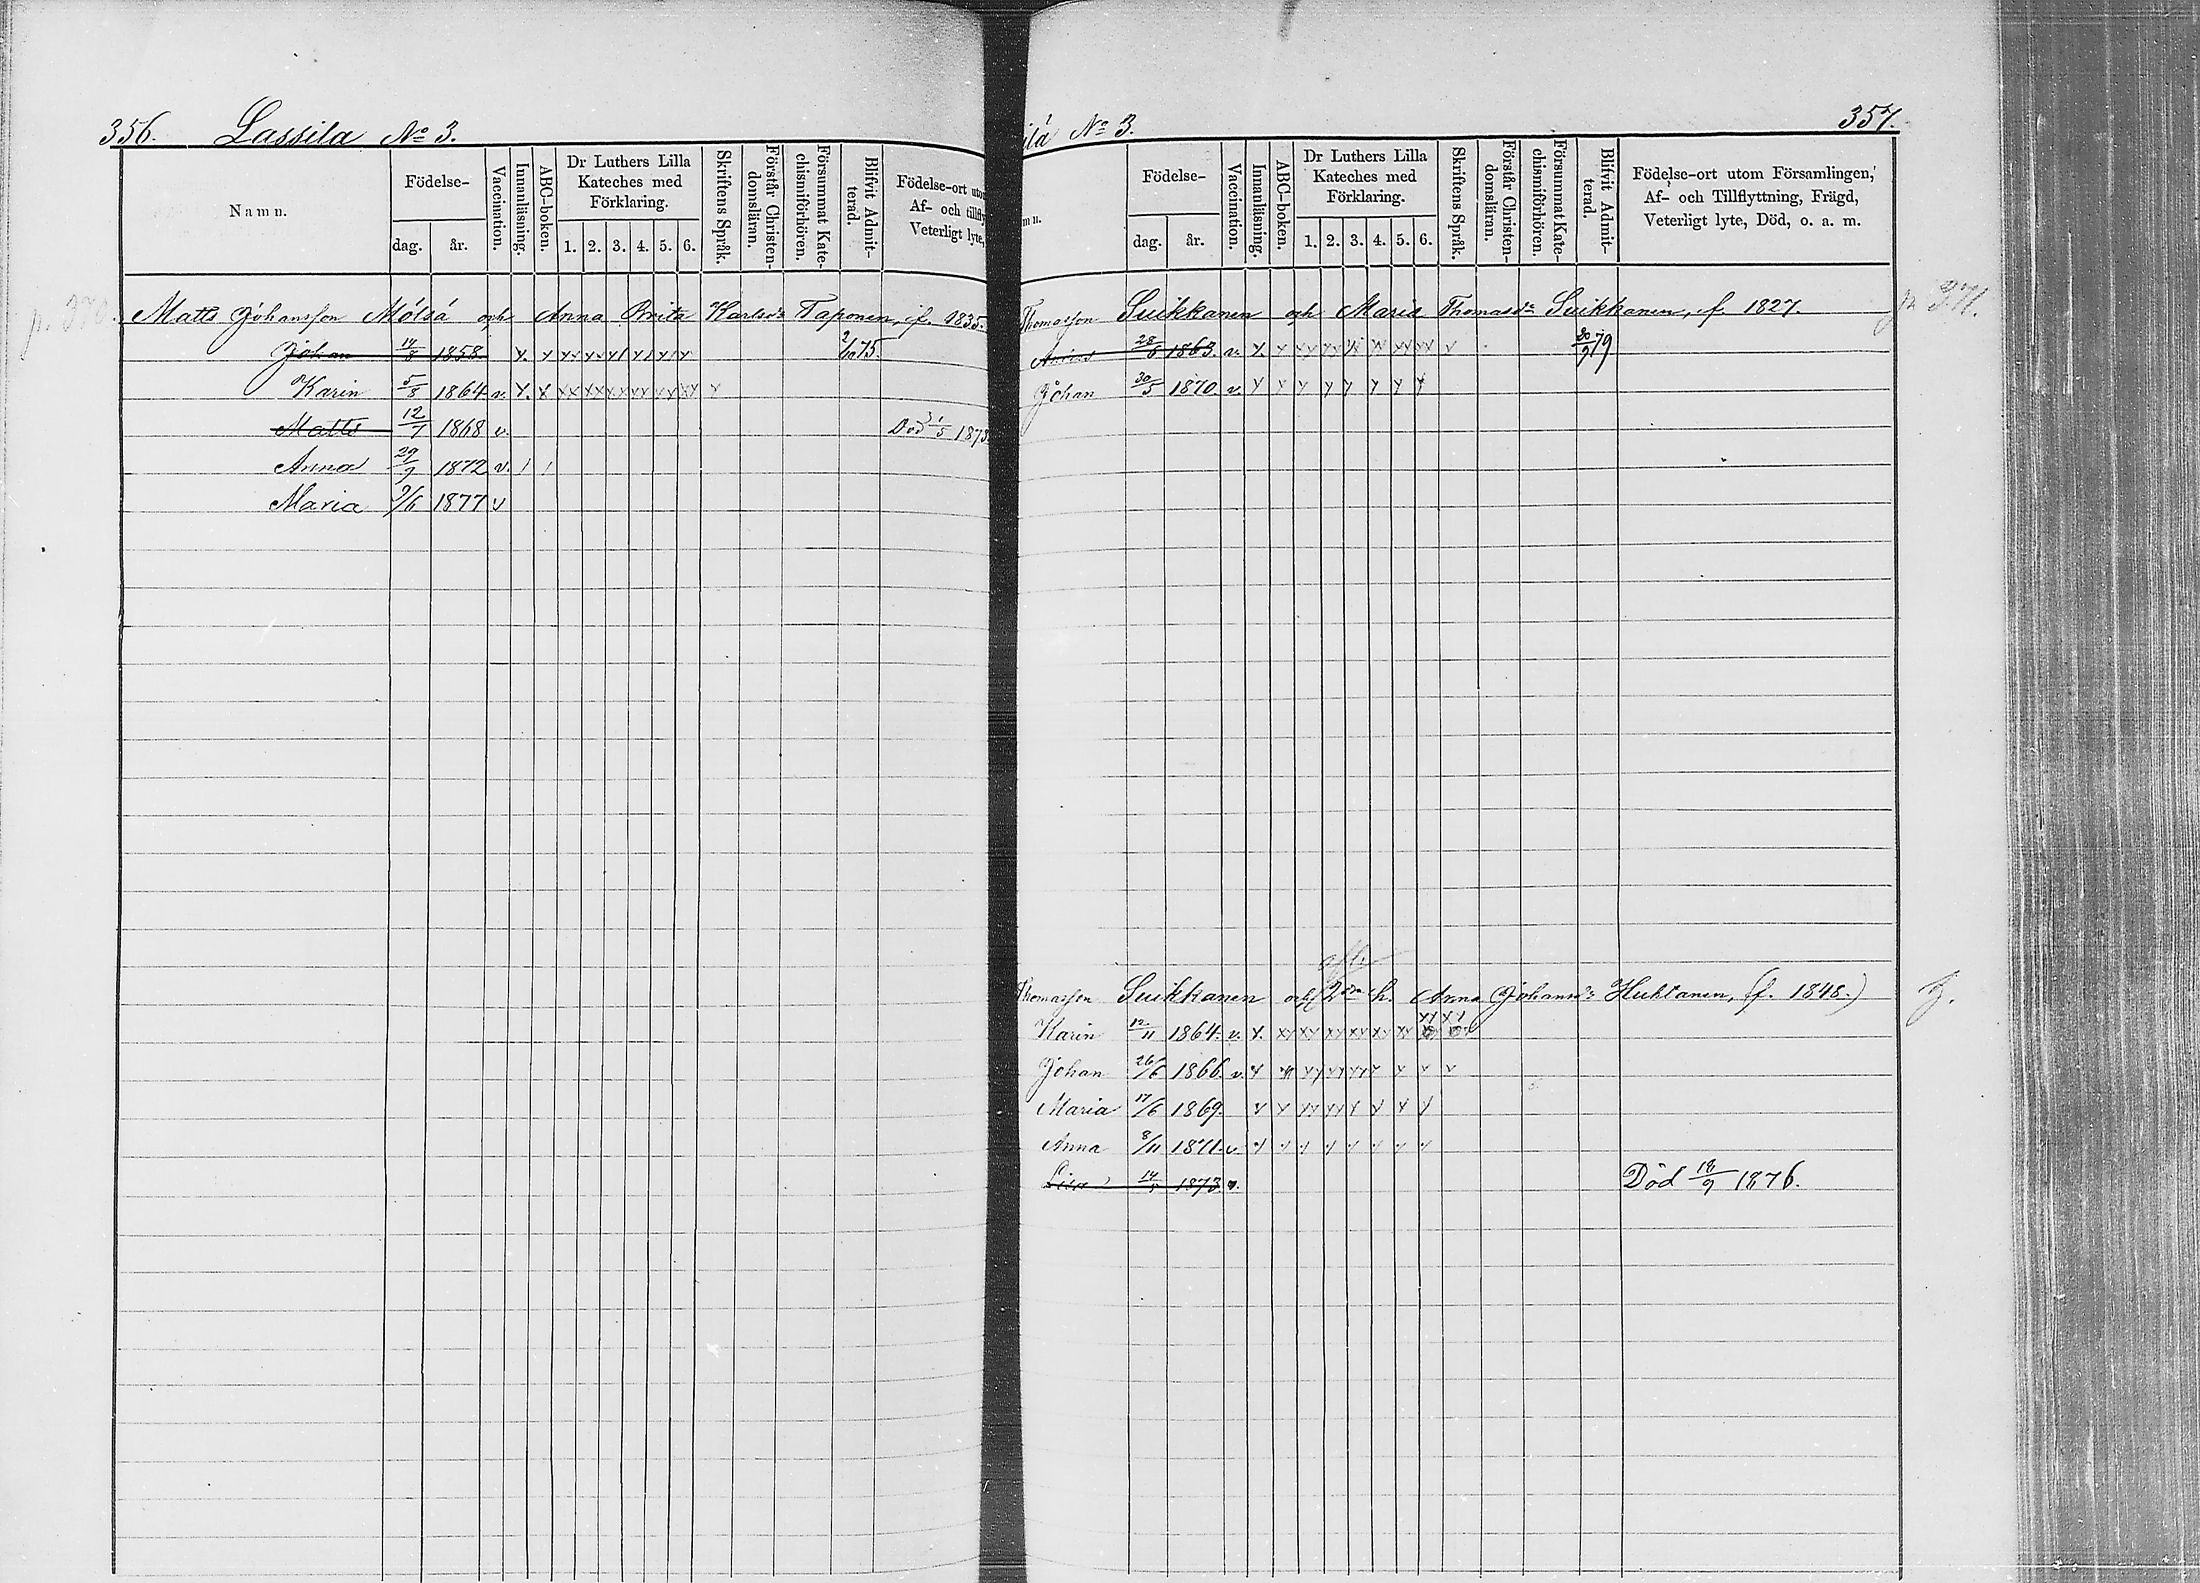 356. Lassila No 3.
Namn.
Födelse-
dag. år.
Vaccination.
Innanläsning.
ABC-boken.
Dr Luthers Lilla Kateches med Förklaring.
1. 2. 3. 4. 5. 6.
Skriftens Språk.
Förstår Christen-domsläran.
Försummat Kate-chismiförhören.
Blifvit Admit-terad.
Födelse-ort utom
Af- och tillfly
Veterligt lyte,
Matts Johansson Mölsä och Anna Brita Karlsdr Taponen, f. 1835.
Johan 14/8 1858. 2/10 75.
Karin 5/8 1864 v.
Matts 12/7 1868 v. Död 31/5 1873.
Anna 29/9 1872 v.
Maria 9/6 1877 v
ilä No 3. 357.
mn.
Födelse-
dag. år.
Vaccination.
Innanläsning.
ABC-boken.
Dr Luthers Lilla Kateches med Förklaring.
1. 2. 3. 4. 5. 6.
Skriftens Språk.
Förstår Christen-domsläran.
Försummat Kate-chismiförhören.
Blifvit Admit-terad.
Födelse-ort utom Församlingen,
Af- och Tillflyttning, Frägd,
Veterligt lyte, Död, o. a. m.
Thomasson Suikkanen och Maria Thomasdr Suikkanen, f. 1827. p. 371.
28/6 1863. v. 20/9 79
Johan 30/5 1870. v.
Thomasson Suikkanen och 2dra h. Anna Johansdr Huhtanen, (f. 1848.)
Karin 12/11 1864. v.
Johan 26/6 1866. v.
Maria 17/6 1869.
Anna 8/11 1871. v.
Lisa 14/5 1873. v. Död 18/9 1876.